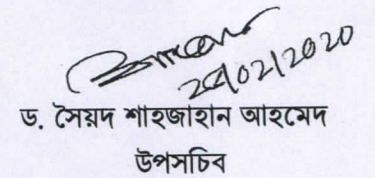 02/2020
ড. সৈয়দ শাহজাহান আহমেদ
উপসচিব